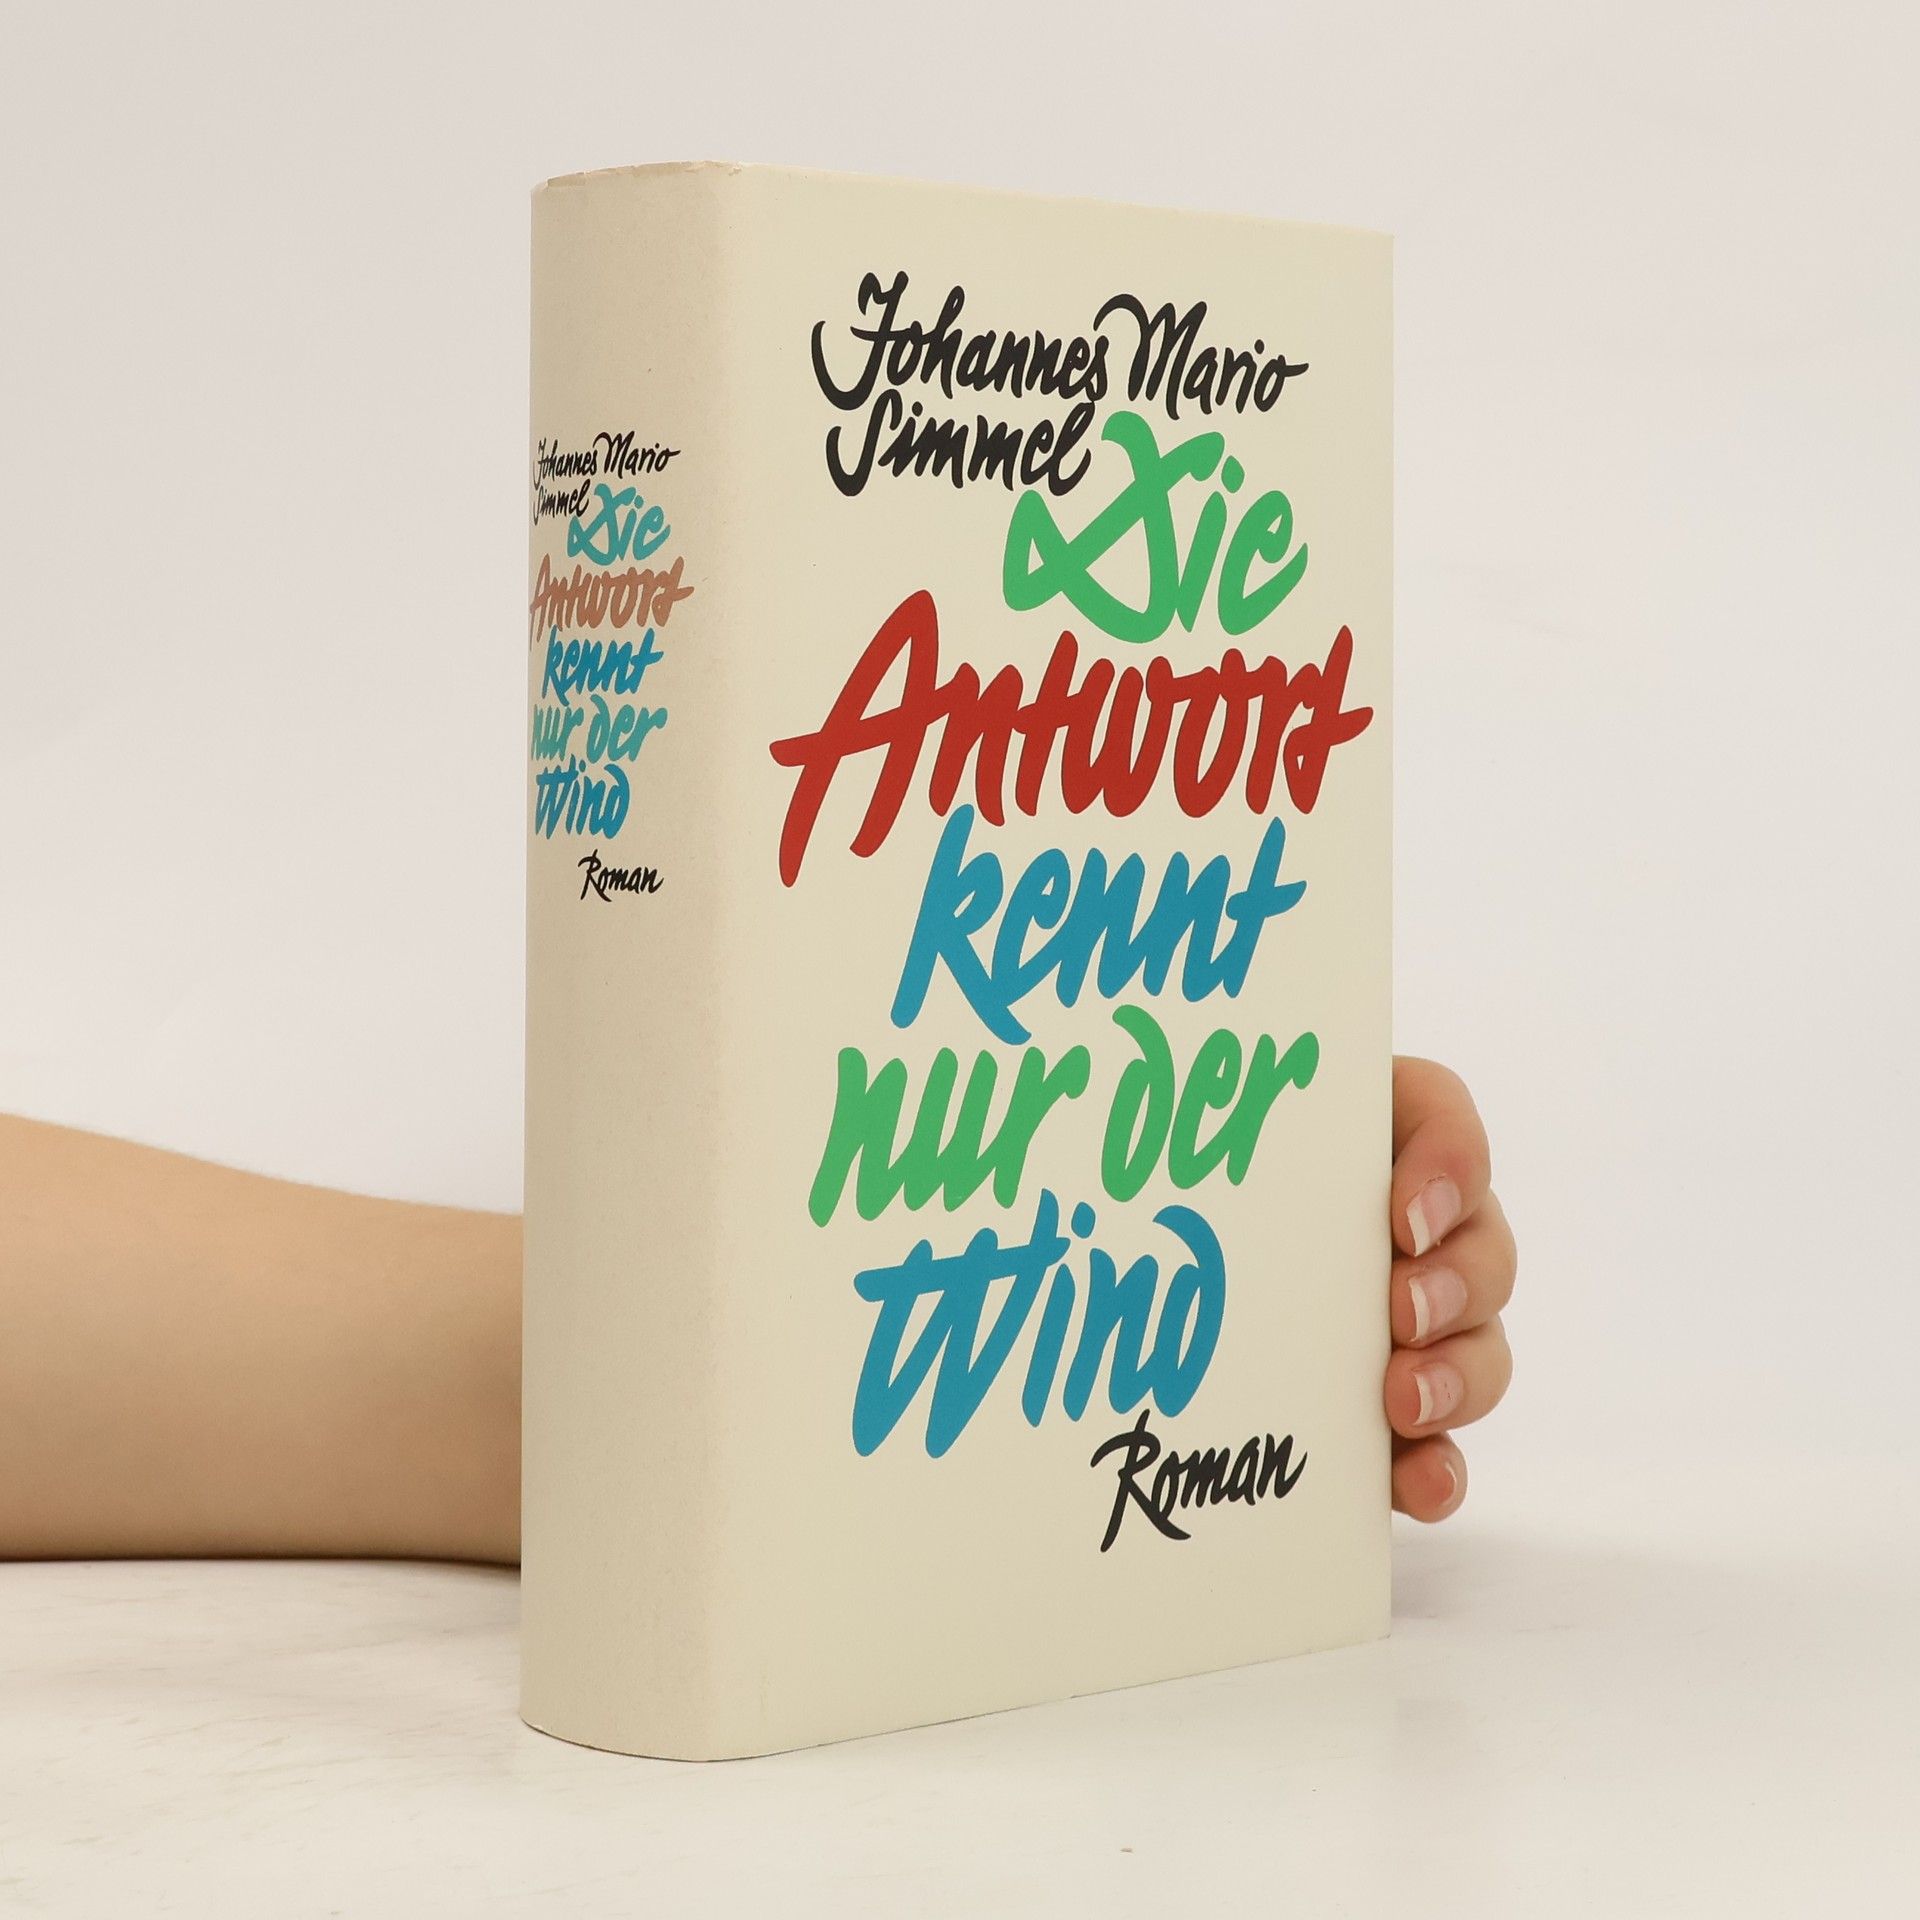 Johannes Mario
Simmel
Die
Antwort
kennt
nur der
Wind
Roman
Johannes Mario
Simmel
Die
Antwort
kennt
nur der
Wind
Roman